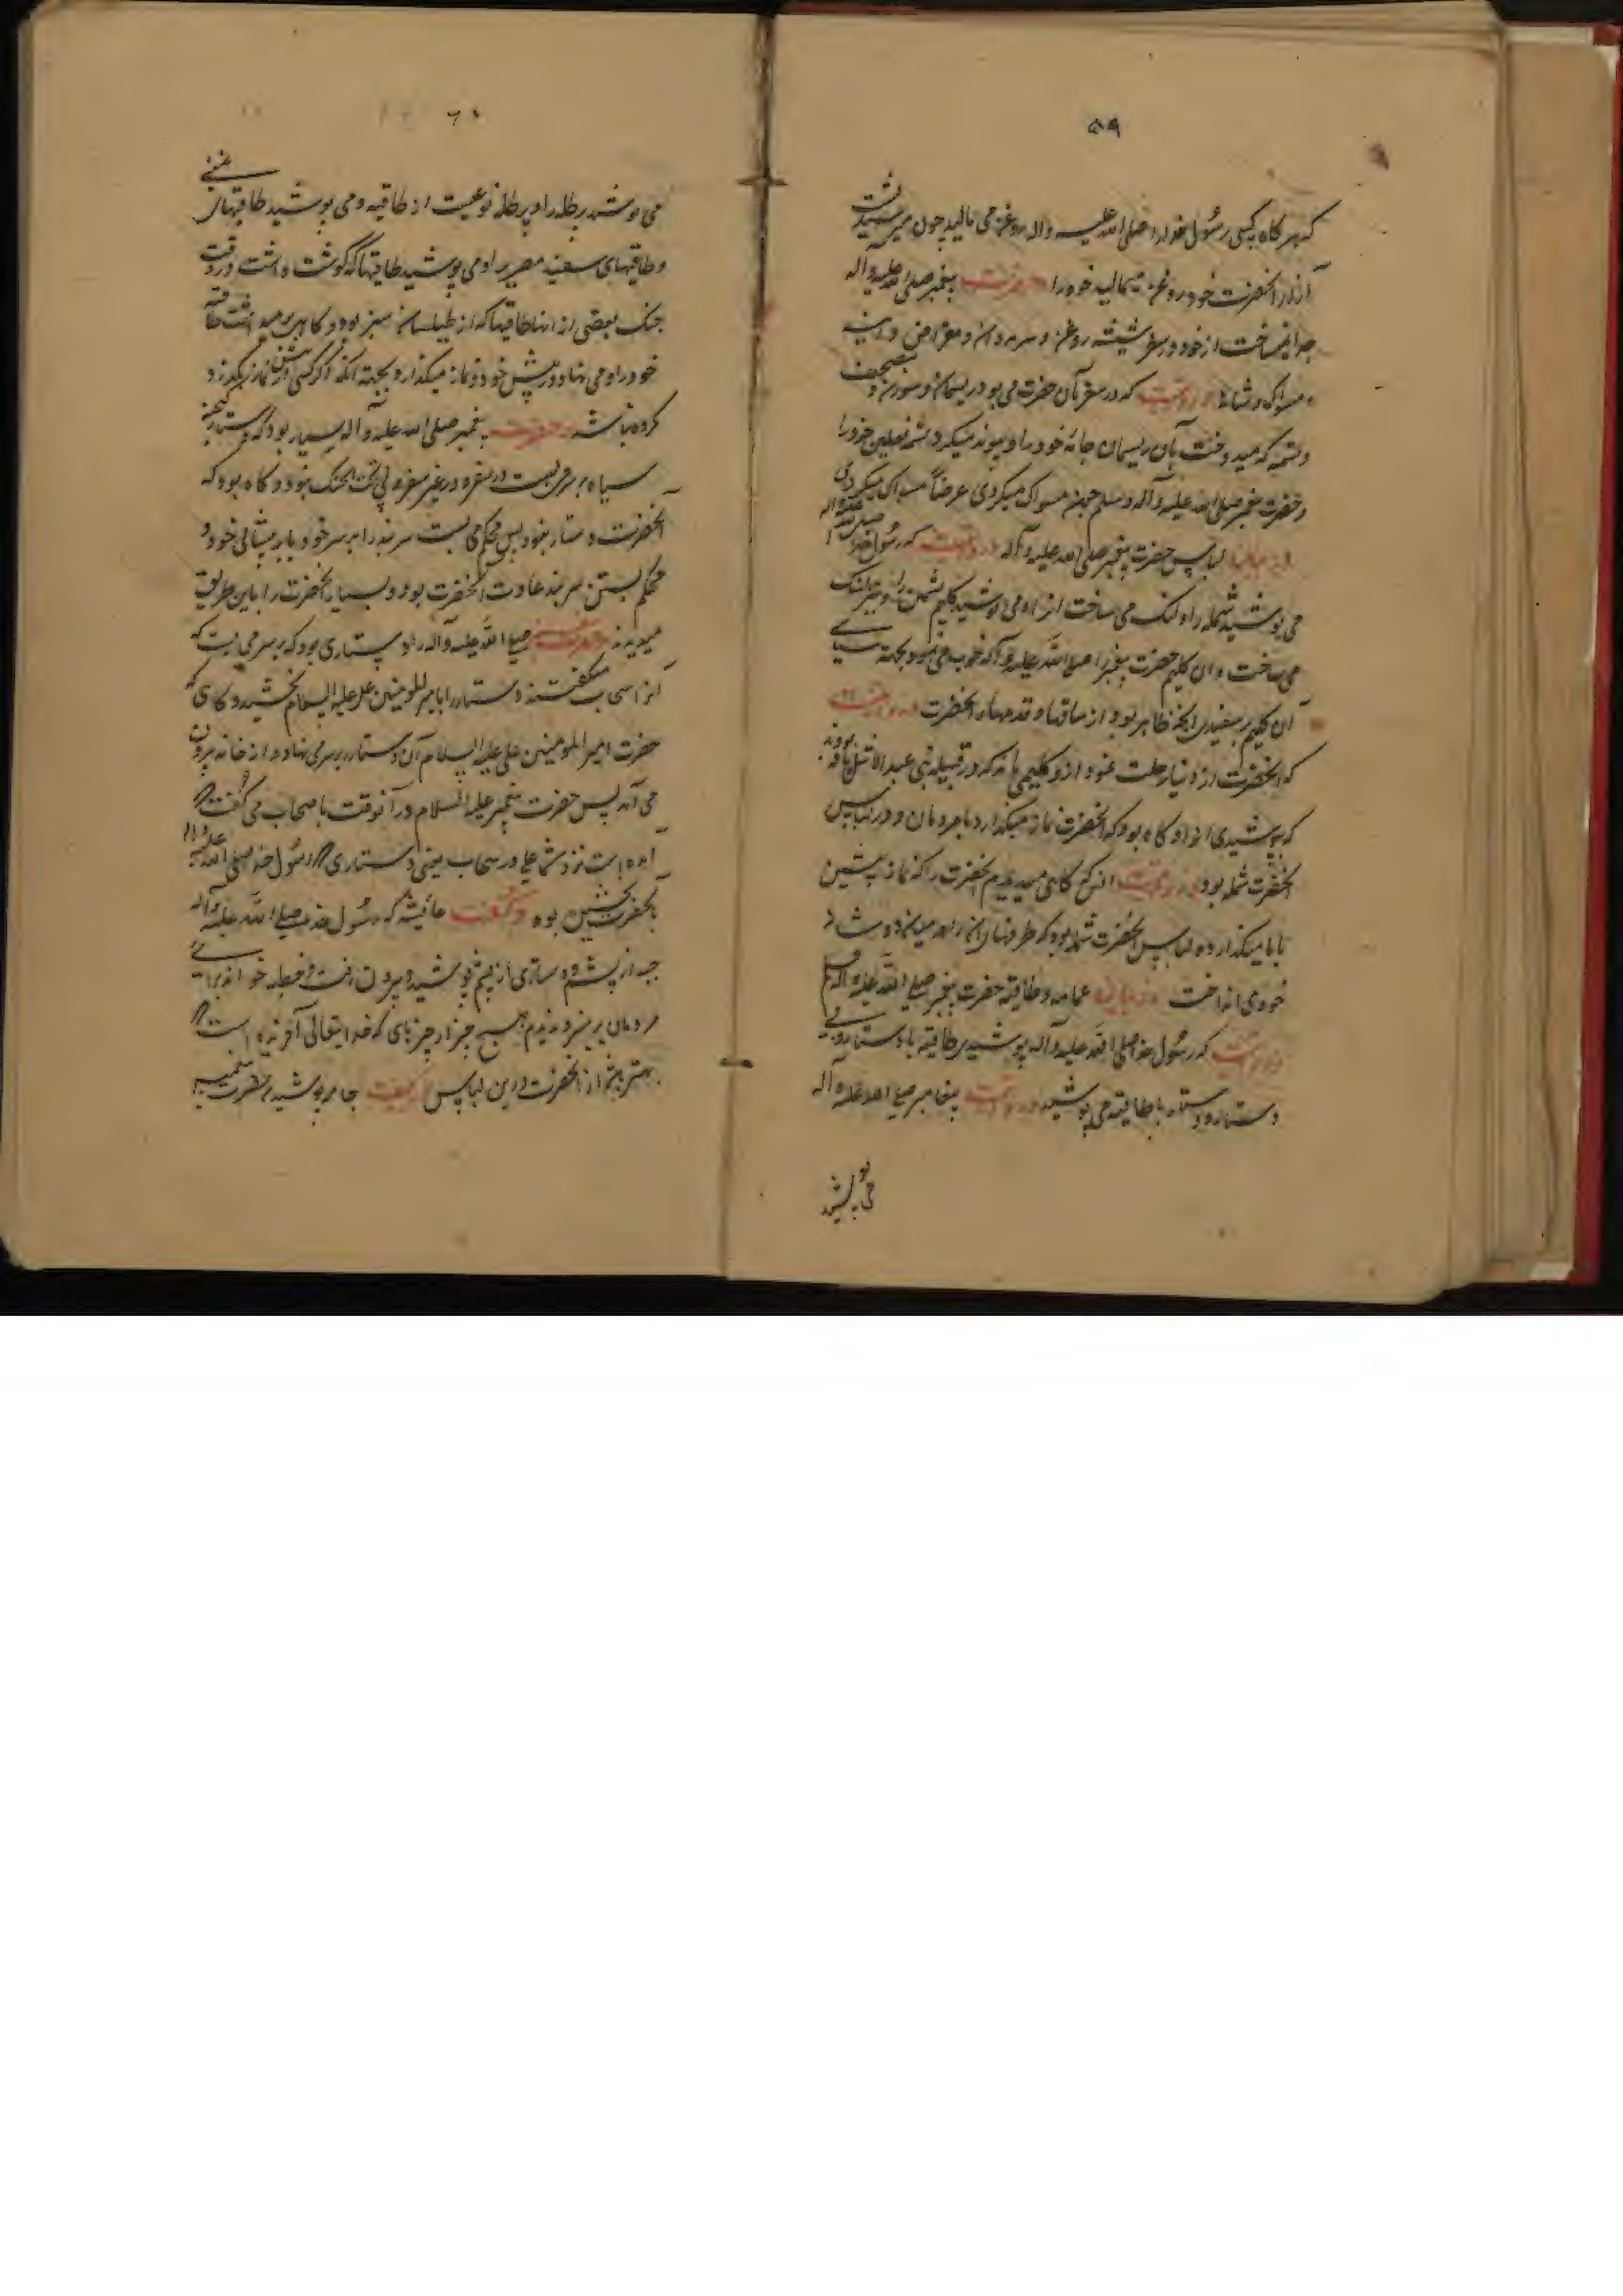 ۵۹
که هر گاه کسی رسول خدا را صلی الله علیه و آله روغن می مالید چون میرسید
آنحضرت خود روغن میمالید خود را و حضرت پیغمبر صلی الله علیه و آله
جدا نمیساخت از خود در سفر شیشه روغن و سرمه دان و مقراض و آینه
و مسواک و شانه و در روایت که در سفر با آن حضرت می بود ریسمان و سوزن و
و تسمه که میدوخت بآن ریسمان جامه خود را و پیوند میکرد بتسمه نعلین خود را
و حضرت پیغمبر صلی الله علیه و آله و سلم چون مسواک میکردی عرضاً مسواک میکردی
در بیان لباس حضرت پیغمبر صلی الله علیه و آله در روایت که رسول خدا صلی الله علیه و آله
می پوشید شمله را و لنگ می ساخت از او می پوشید گلیم پشمین را و نیز لنگ
می ساخت و آن گلیم حضرت پیغمبر را صلی الله علیه و آله خوب می نمود بجهة سیاهی
آن گلیم بسفیدی آنچه ظاهر بود از ساقها و قدمهای آنحضرت در روایت
که آنحضرت از دنیا رحلت نمود از او گلیمی ماند که در قبیله بنی عبد الاشهل بافته بودند
که پوشیدی او را و گاه بود که آنحضرت نماز میگذارد با مردمان و در لباس
آنحضرت شمله بود و در روایت انس که گاهی میدیدم آنحضرت را که نماز پیشین
با ما میگذارد و لباس آنحضرت شمله بود که طرفهای آن را در میان دو شانه
خود می انداخت در بیان عمامه و طاقیه حضرت پیغمبر صلی الله علیه و آله و سلم
در روایت که رسول خدا صلی الله علیه و آله پوشیدی طاقیه با دستار و بی
دستار و دستار با طاقیه می پوشید در روایت پیغامبر صلی الله علیه و آله
می پوشید
۶۰
می پوشید برطله را و برطله نوعیست از طاقیه و می پوشید طاقیهای یمنی
و طاقیهای سفید مصری را و می پوشید طاقیها که گوشت داشت در وقت
جنگ بعضی از انها طاقیها که از طیلسان سبز بود و گاهی برمیداشت طاقیه
خود را و می نهاد در پیش خود و نماز میگذارد بجهة آنکه اگر کسی از پیش نماز بگذرد
کرده باشد و حضرت پیغمبر صلی الله علیه و آله بسیار بود که دستار
سیاه بر سر می بست در سفر و در غیر سفر و بی تحت الحنک نبود و گاه بود که
آنحضرت دستار نبود پس محکم می بست سربند را بر سر خود یا بر پیشانی خود و
محکم بستن سربند عادت آنحضرت بود و بسیار آنحضرت را باین طریق
میدیدند و حضرت صلی الله علیه و آله را دستاری بود که بر سر می بست که
آنرا سحاب میگفتند و دستار را بامیر المومنین علی علیه السلام بخشید و گاهی که
حضرت امیر المومنین علی علیه السلام آن دستار بر سر می نهاد و از خانه بیرون
می آمد پس حضرت پیغمبر علیه السلام در آنوقت با صحاب می گفت
آمده است نزد شما علی در سحاب یعنی دستاری که رسول خدا صلی الله علیه و آله
بآنحضرت بخشیده بود و گفت عایشه که رسول خدا صلی الله علیه و آله
جبه از پشم و دستاری از پشم پوشید و بیرون رفت و خطبه خواند برای
مردمان بر منبر و ندیدم هیچ چیز از چیزهای که خدا یتعالی آفریده است
بهتر از آنحضرت در این لباس جامه پوشیدن حضرت پیغمبر